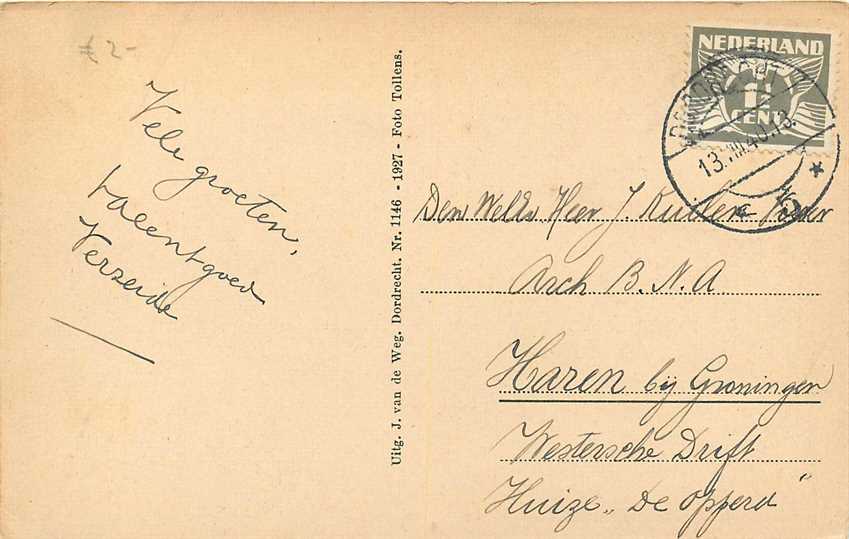 € 2-
Vele groeten,
Verzeide
Uitg. J. van de Weg. Dordrecht. Nr. 1146 - 1927 - Foto Tollens.
NEDERLAND
1½
CENT
DORDRECHT
13.VIII.40.13.
Den Weled. Heer J. Kuiler
Arch B.N.A
Haren bij Groningen
Westersche Drift
Huize „De Opperd"